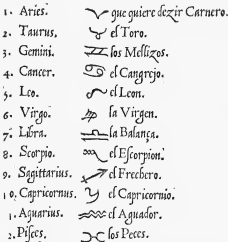 1. Aries. ♈ que quiere dezir Carnero.
2. Taurus. ♉ el Toro.
3. Gemini. ♊ los Mellizos.
4. Cancer. ♋ el Cangrejo.
5. Leo. ♌ el Leon.
6. Virgo. ♍ la Virgen.
7. Libra. ♎ la Balança.
8. Scorpio. ♏ el Eſcorpion.
9. Sagittarius. ♐ el Frechero.
10. Capricornus. ♑ el Capricornio.
1. Aquarius. ♒ el Aguador.
2. Piſces. ♓ los Peces.